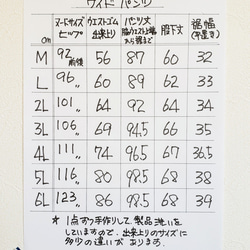 ワイドパンツ
cm ヌードサイズ ヒップ ウエストゴム 出来上り パンツ丈 脇ウエスト上端から裾まで 股下丈 裾幅 (平置き)
M 92前後 56 87 60 32
L 96〃 60 89 62 33
2L 101〃 64 92 64 34
3L 106〃 69 94.5 66 35
4L 111〃 74 96.5 67 36.5
5L 116〃 80 98.5 68 38
6L 123〃 86 98.5 68 39
* 1点ずつ手作りして製品洗いを
していますので、出来上りのサイズに
多少の違いがあります。